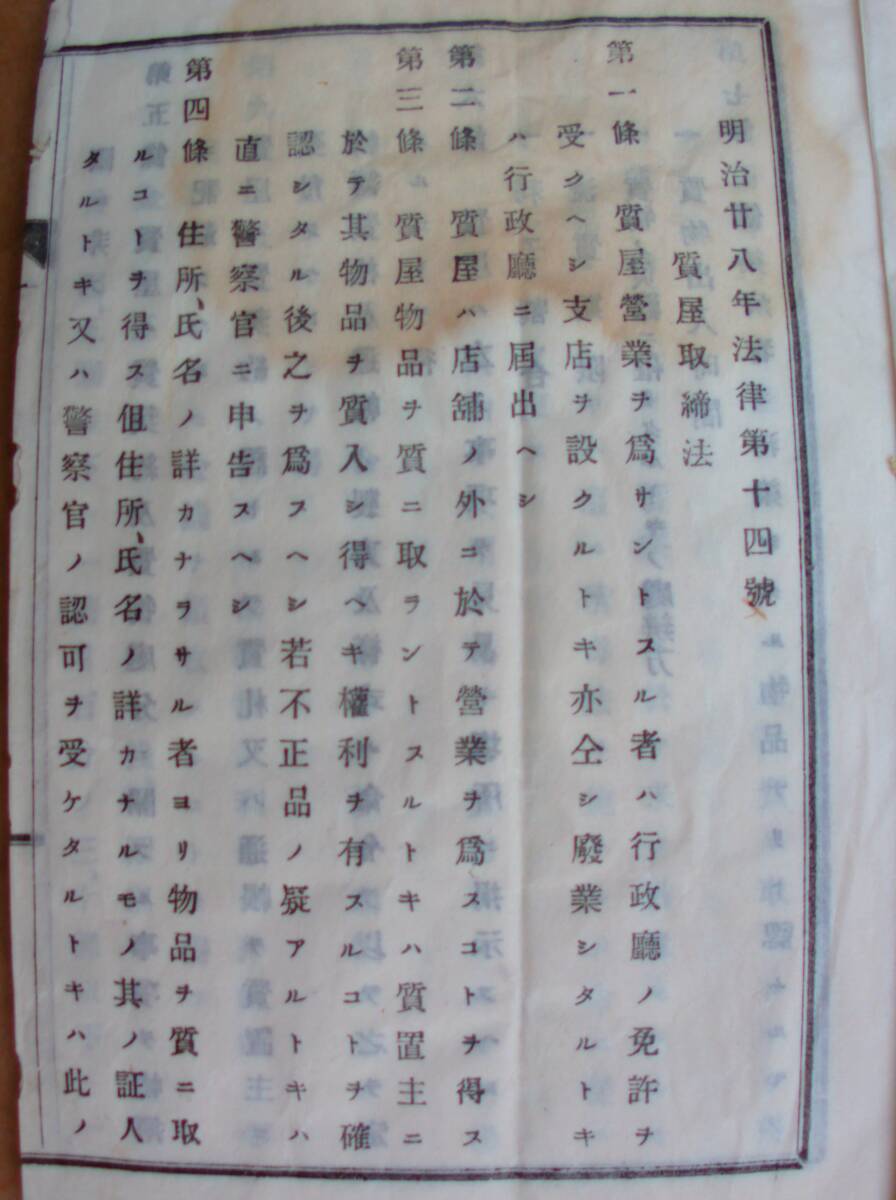 明治廿八年法律第十四號
質屋取締法
第一條　質屋營業ヲ爲サントスル者ハ行政廳ノ免許ヲ
受クヘシ支店ヲ設クルトキ亦仝シ廢業シタルトキ
ハ行政廳ニ屆出ヘシ
第二條　質屋ハ店舖ノ外ニ於テ營業ヲ爲スコトヲ得ス
第三條　質屋物品ヲ質ニ取ラントスルトキハ質置主ニ
於テ其物品ヲ質入シ得ヘキ權利ヲ有スルコトヲ確
認シタル後之ヲ爲スヘシ若不正品ノ疑アルトキハ
直ニ警察官ニ申告スヘシ
第四條　住所、氏名ノ詳カナラサル者ヨリ物品ヲ質ニ取
ルコトヲ得ス伹住所、氏名ノ詳カナルモノ其ノ証人
タルトキ又ハ警察官ノ認可ヲ受ケタルトキハ此ノ